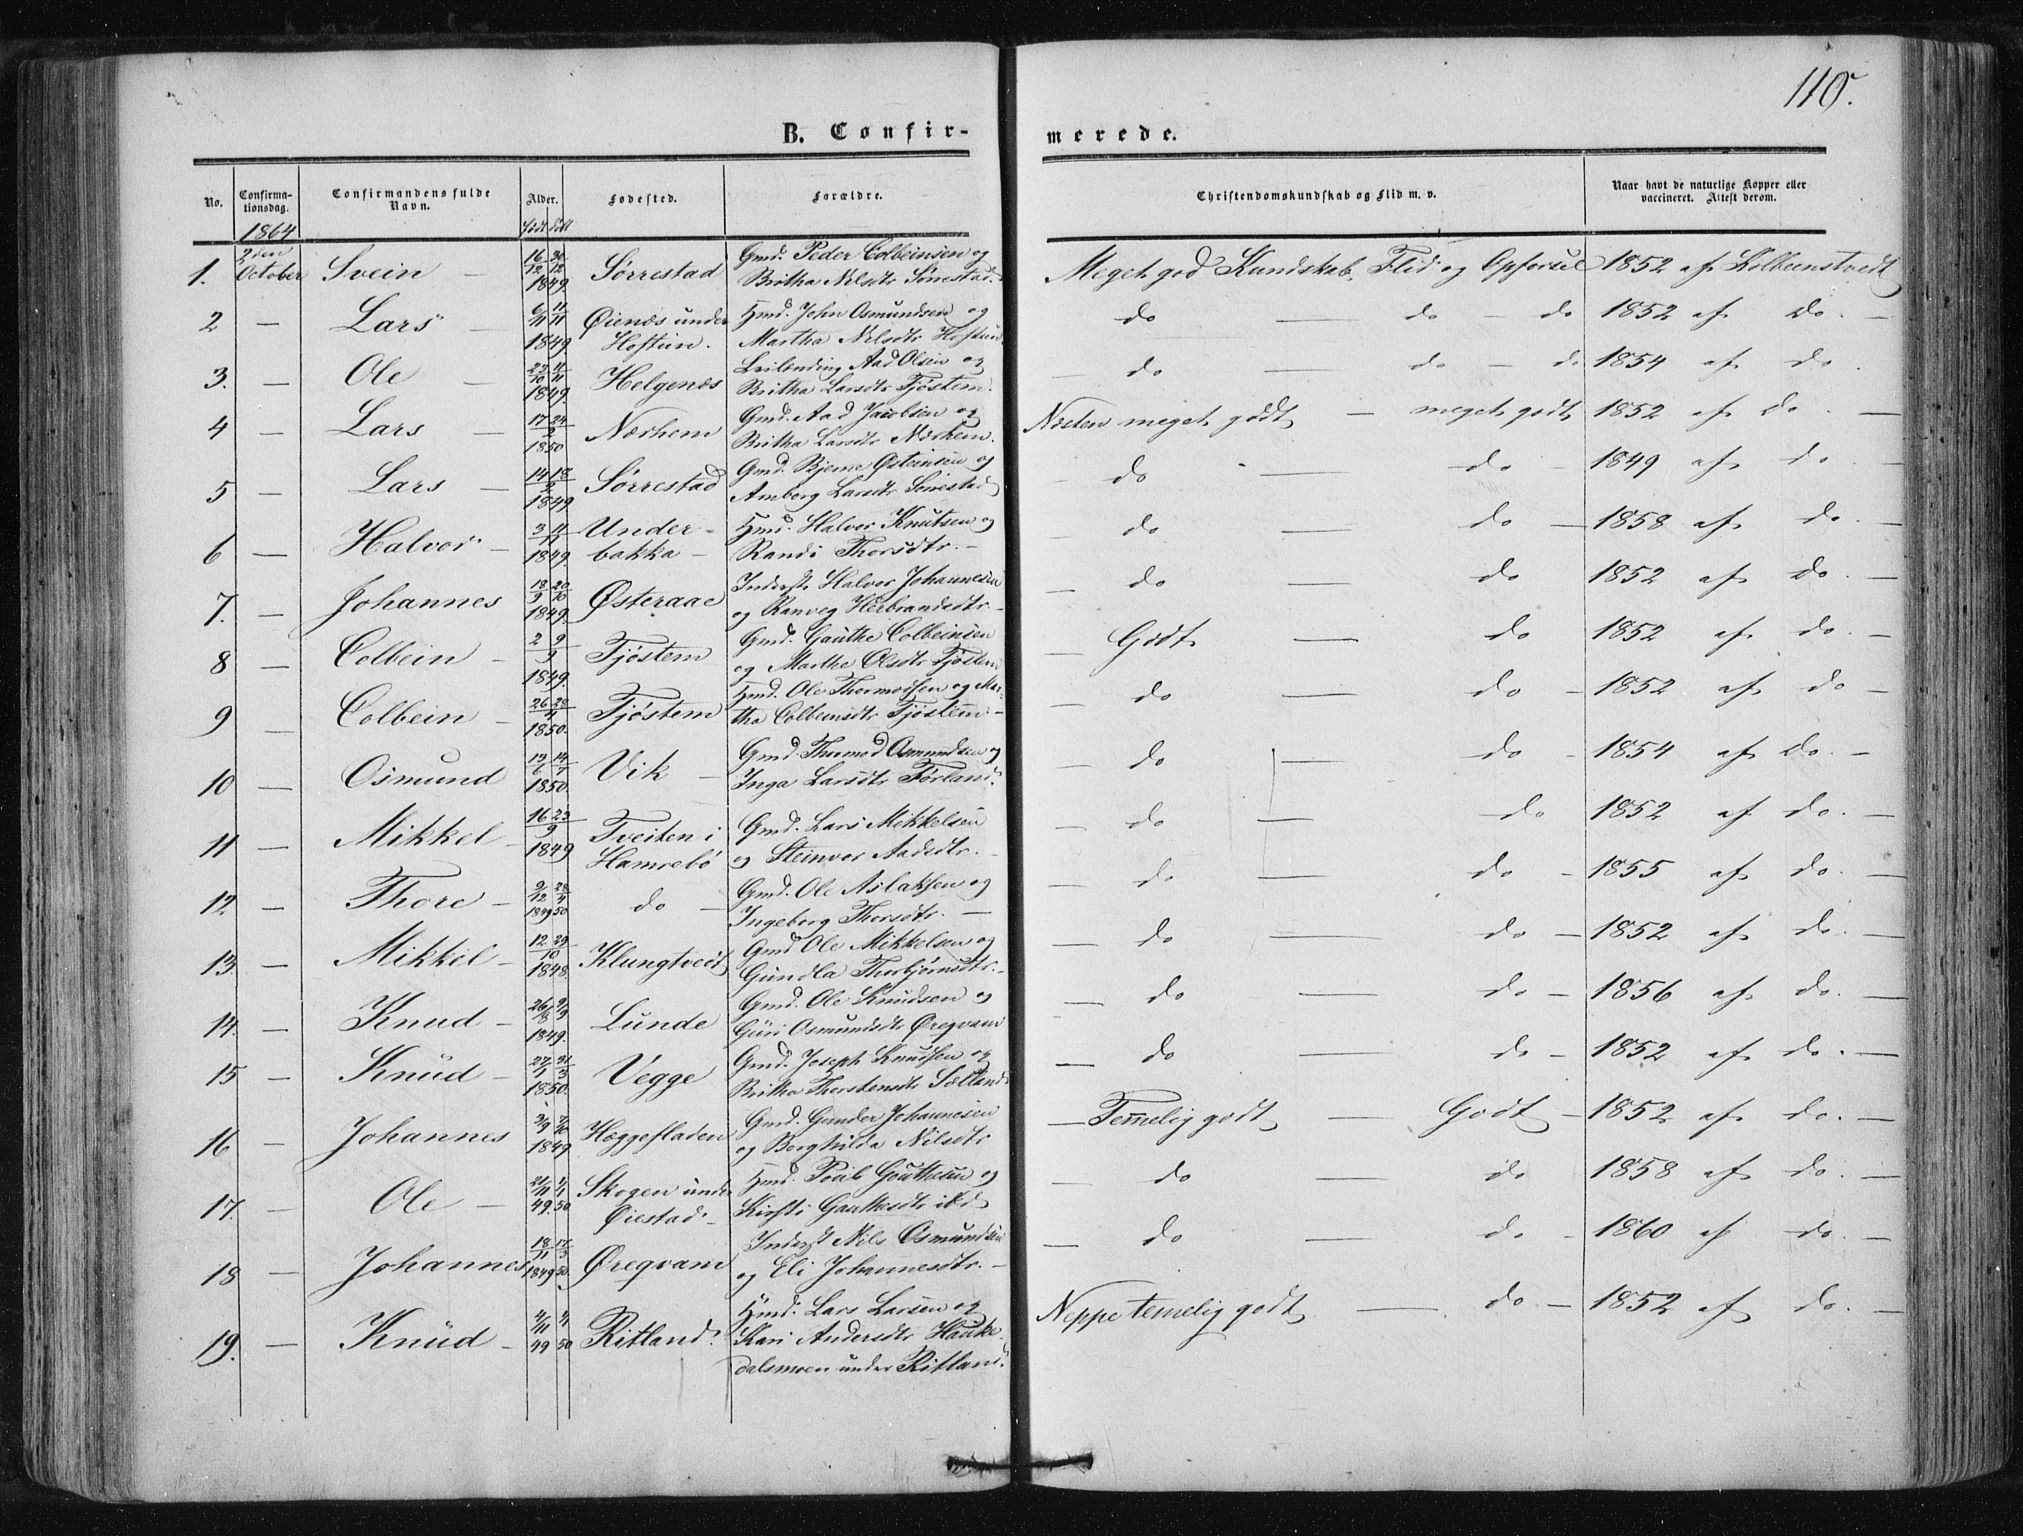 110.
B. Confir-
merede.
No.
Confirma-
tionsdag.
Confirmandens fulde
Navn.
Alder.
Fødested.
Forældre.
Christendomskundskab og Flid m. v.
Naar havt de naturlige Kopper eller
vaccineret. Attest derom.
1864
født døbt
1. 2den October Svein - 16/12 30/12 1849. Sørrestad Gmd. Peder Colbeinsen og
Britha Nilsdtr Sørrestad. Meget god Kundskab, Flid og Opførsel 1852 af Kolbeenstvedt
2 — Lars 6/11 11/11 1849 Øienæs under Hmd. John Osmundsen og
Hoftun. Martha Nilsdtr Hoftun do — do - do 1852 af do. —
3. — Ole - 11/11 1849. Helgenæs Leilænding Aad Olsen og
Britha Larsdtr Tjøstem. — do — do - do 1854 af do
4 — Lars - 17 24/2 1850 Nærhem Gmd. Aad Jacobsen og
Britha Larsdtr Nærhem. Næsten meget godt — meget godt 1852 af do. —
5 — Lars - 14 18/2 1849 Sørrestad Gmd. Bjerne Østeinsen og
Amberg Larsdtr Sørrestad - do — do - 1849 af do. —
6 — Halvor - 3 11/11 1849. Under- Hmd. Halvor Knutsen og
bakka - Randi Thorsdtr. - — do — do — 1858 af do. —
7. — Johannes 20/10 1849. Østeraae Inderst Halvor Johannesen
og Ranveg Herbrandsdtr. — do — do 1852 af do. —
8 — Colbein - 2 9/9 1849. Tjøstem Gmd. Gauthe Colbeinsen
og Marthe Olsdtr Tjøstem — Godt — do 1852 af do. —
9 — Colbein - 26 28/4 1850. Tjøstem Hmd. Ole Thormodsen og Mar-
tha Colbeinsdtr Tjøstem - — do — do - 1852 af do —
10 — Osmund 1850 Vik - Gmd. Thormod Osmundsen og
Inga Larsdtr Førland. — do — do - 1854 af do. -
11 — Mikkel - 16 23/9 1849 Tveiten i Gmd. Lars Mikkelsen
Hamrebø og Steinvor Aadsdtr. - — do — do 1852 af do. —
12. — Thore - 9/12 28/4 1849 50 do - Gmd. Ole Aslaksen og
Ingeborg Thorsdtr. — — do — do - 1855 af do. —
13. — Mikkel - 12 29/10 1848. Klungtvedt Gmd Ole Mikkelsen og
Gundla Thorbjørnsdtr. — do — do - 1852 af do. —
14. — Knud - 26/8 9/9 1849. Lunde Gmd. Ole Knudsen og
Guri Osmundsdtr Øreqvam — do — do - 1856 af do. —
15 — Knud - 27/1 31/3 1850. Vegge Gmd. Joseph Knudsen og
Britha Thorstensdtr Sælland — do — do - 1852 af do. —
16 — Johannes 3/9 7/10 1849 Hæggefladen Gmd. Gunder Johannesen
og Borghilda Nilsdtr — Temmelig godt — Godt - 1852 af do. —
17. — Ole - 21/11 1/1 49. 50 Skogen under Hmd. Poul Gauthesen og
Øiestad. - Kirsti Gauthesdtr ibd — do — do 1858 af do. —
18 — Johannes 18/11 17/3 1849 50. Øreqvam Inderst Nils Osmundsen
og Eli Johannesdtr. - — do — do - 1860 af do. —
19. — Knud - 4/11 49 50 Ritland. Hmd. Lars Larsen og
Kari Andersdtr Hauke-
dalsmoen under Ritland. Neppe temelig godt — do - 1852 af do. —